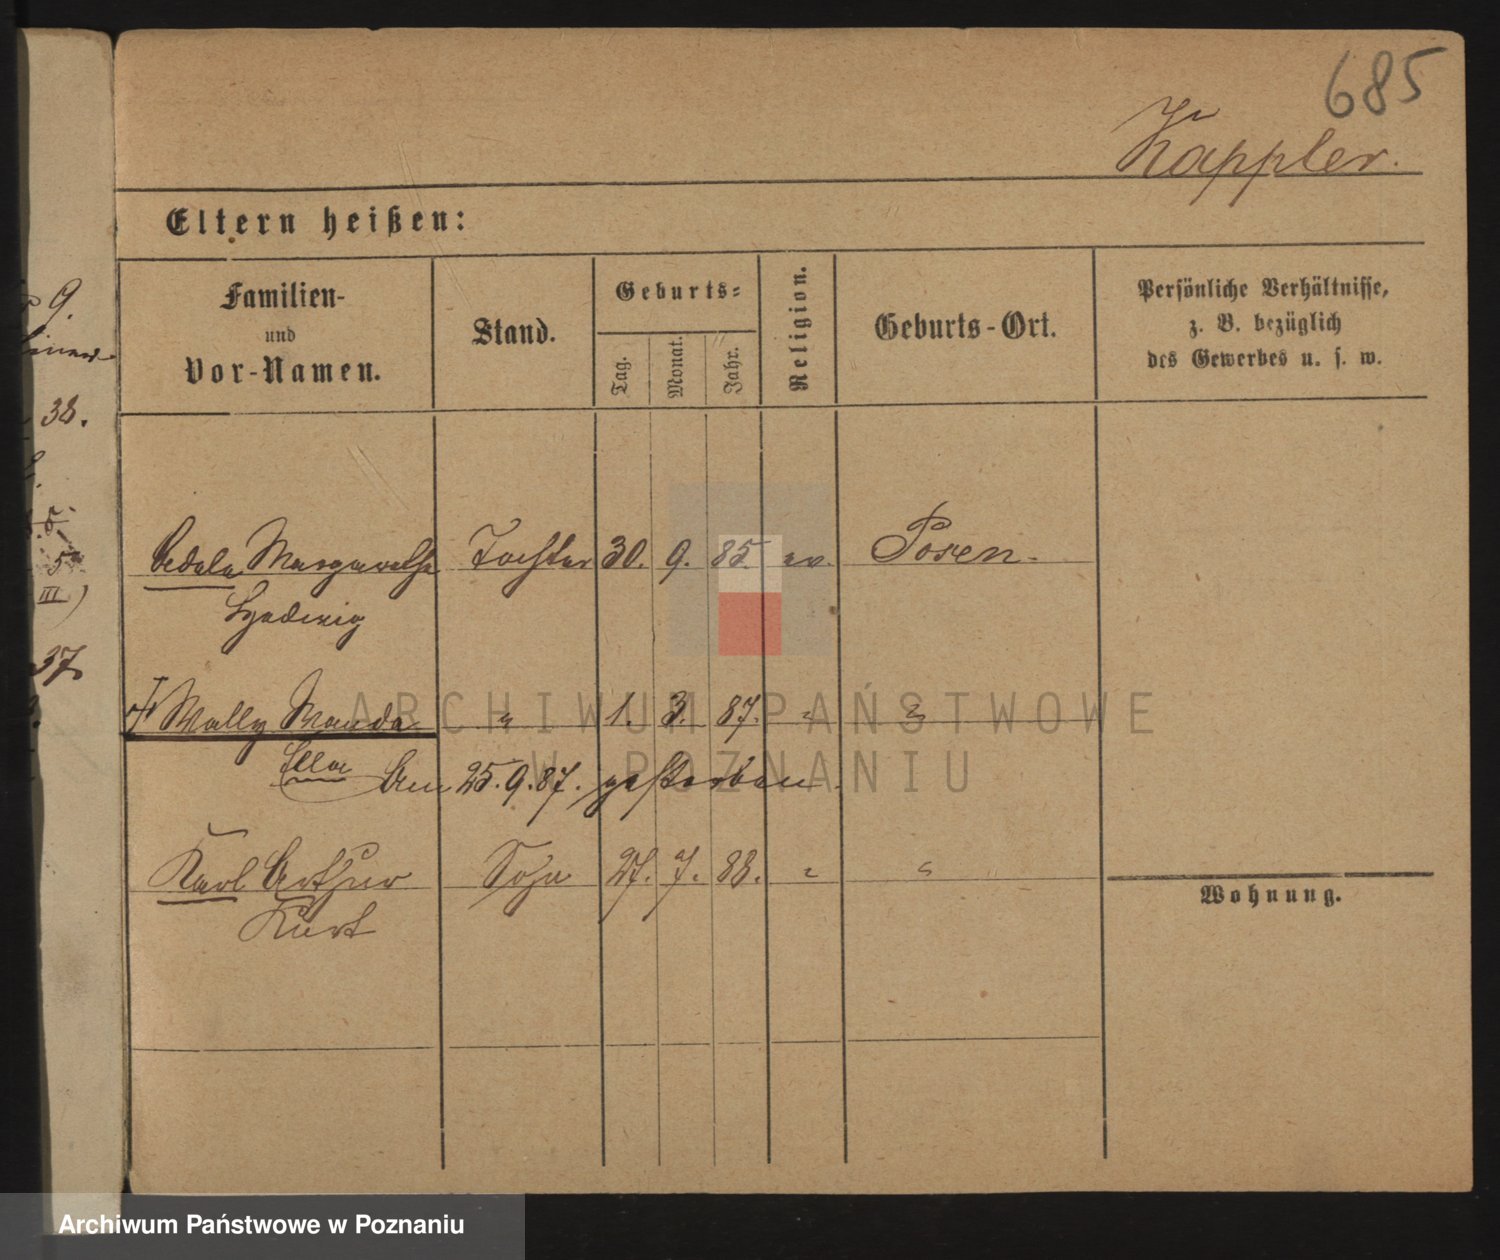 685
Kappler.
Eltern heißen:
Familien-
und
Vor-Namen.
Stand.
Geburts-
Tag.
Monat.
Jahr.
Religion.
Geburts-Ort.
Persönliche Verhältnisse,
z. B. bezüglich
des Gewerbes u. s. w.
9.
38.
5.
III)
37
Margarethe Tochter 30. 9. 85 ev. Posen.
Hedwig
† Wally Wanda " 1. 3. 87. " "
Ella Am 25.9.87. gestorben.
Karl Arthur Sohn 27. 7. 88. " "
Kurt
Wohnung.
ARCHIWUM PAŃSTWOWE
W POZNANIU
Archiwum Państwowe w Poznaniu